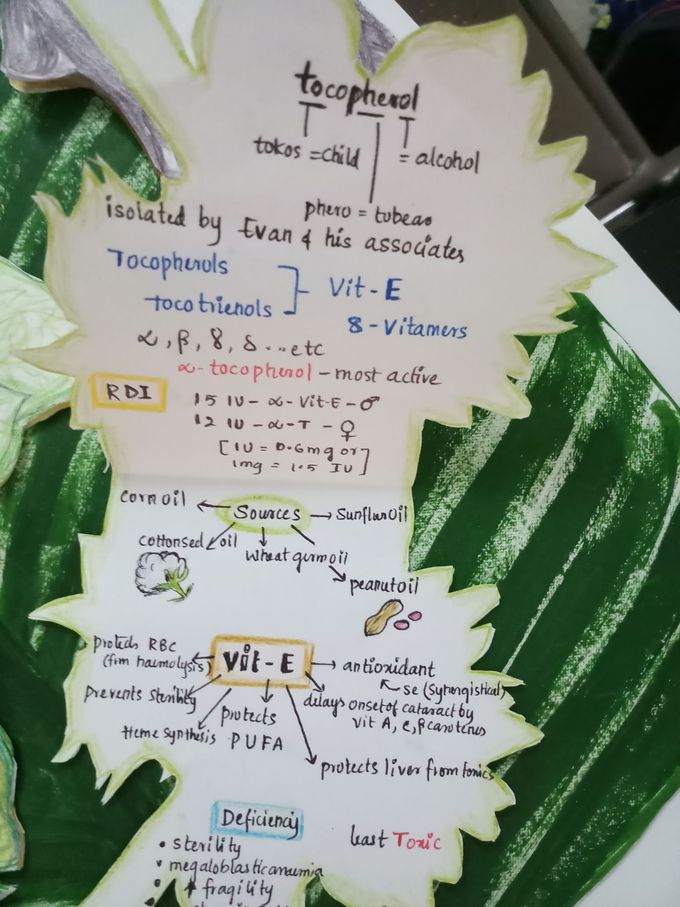 tocopherol
tokos = child
= alcohol
phero = tobear
isolated by Evan & his associates
Tocopherols
tocotrienols
Vit-E
8-Vitamers
α, β, γ, δ ...etc
α-tocopherol - most active
RDI
15 IU - α-Vit-E - ♂
12 IU - α-T - ♀
[IU = 0.6mg or
1mg = 1.5 IU]
Sources
corn oil
Sunflur oil
cottonsed oil
wheat gurm oil
peanut oil
Vit-E
protects RBC
(frm haemolysis)
prevents sterility
Heme synthesis
protects
PUFA
antioxidant
se (Synergistical)
delays onset of cataract by
vit A, e, β carotenes
protects liver from tonics
Deficiency
• sterility
• megaloblasticanumia
• ↑ fragility
least Toxic